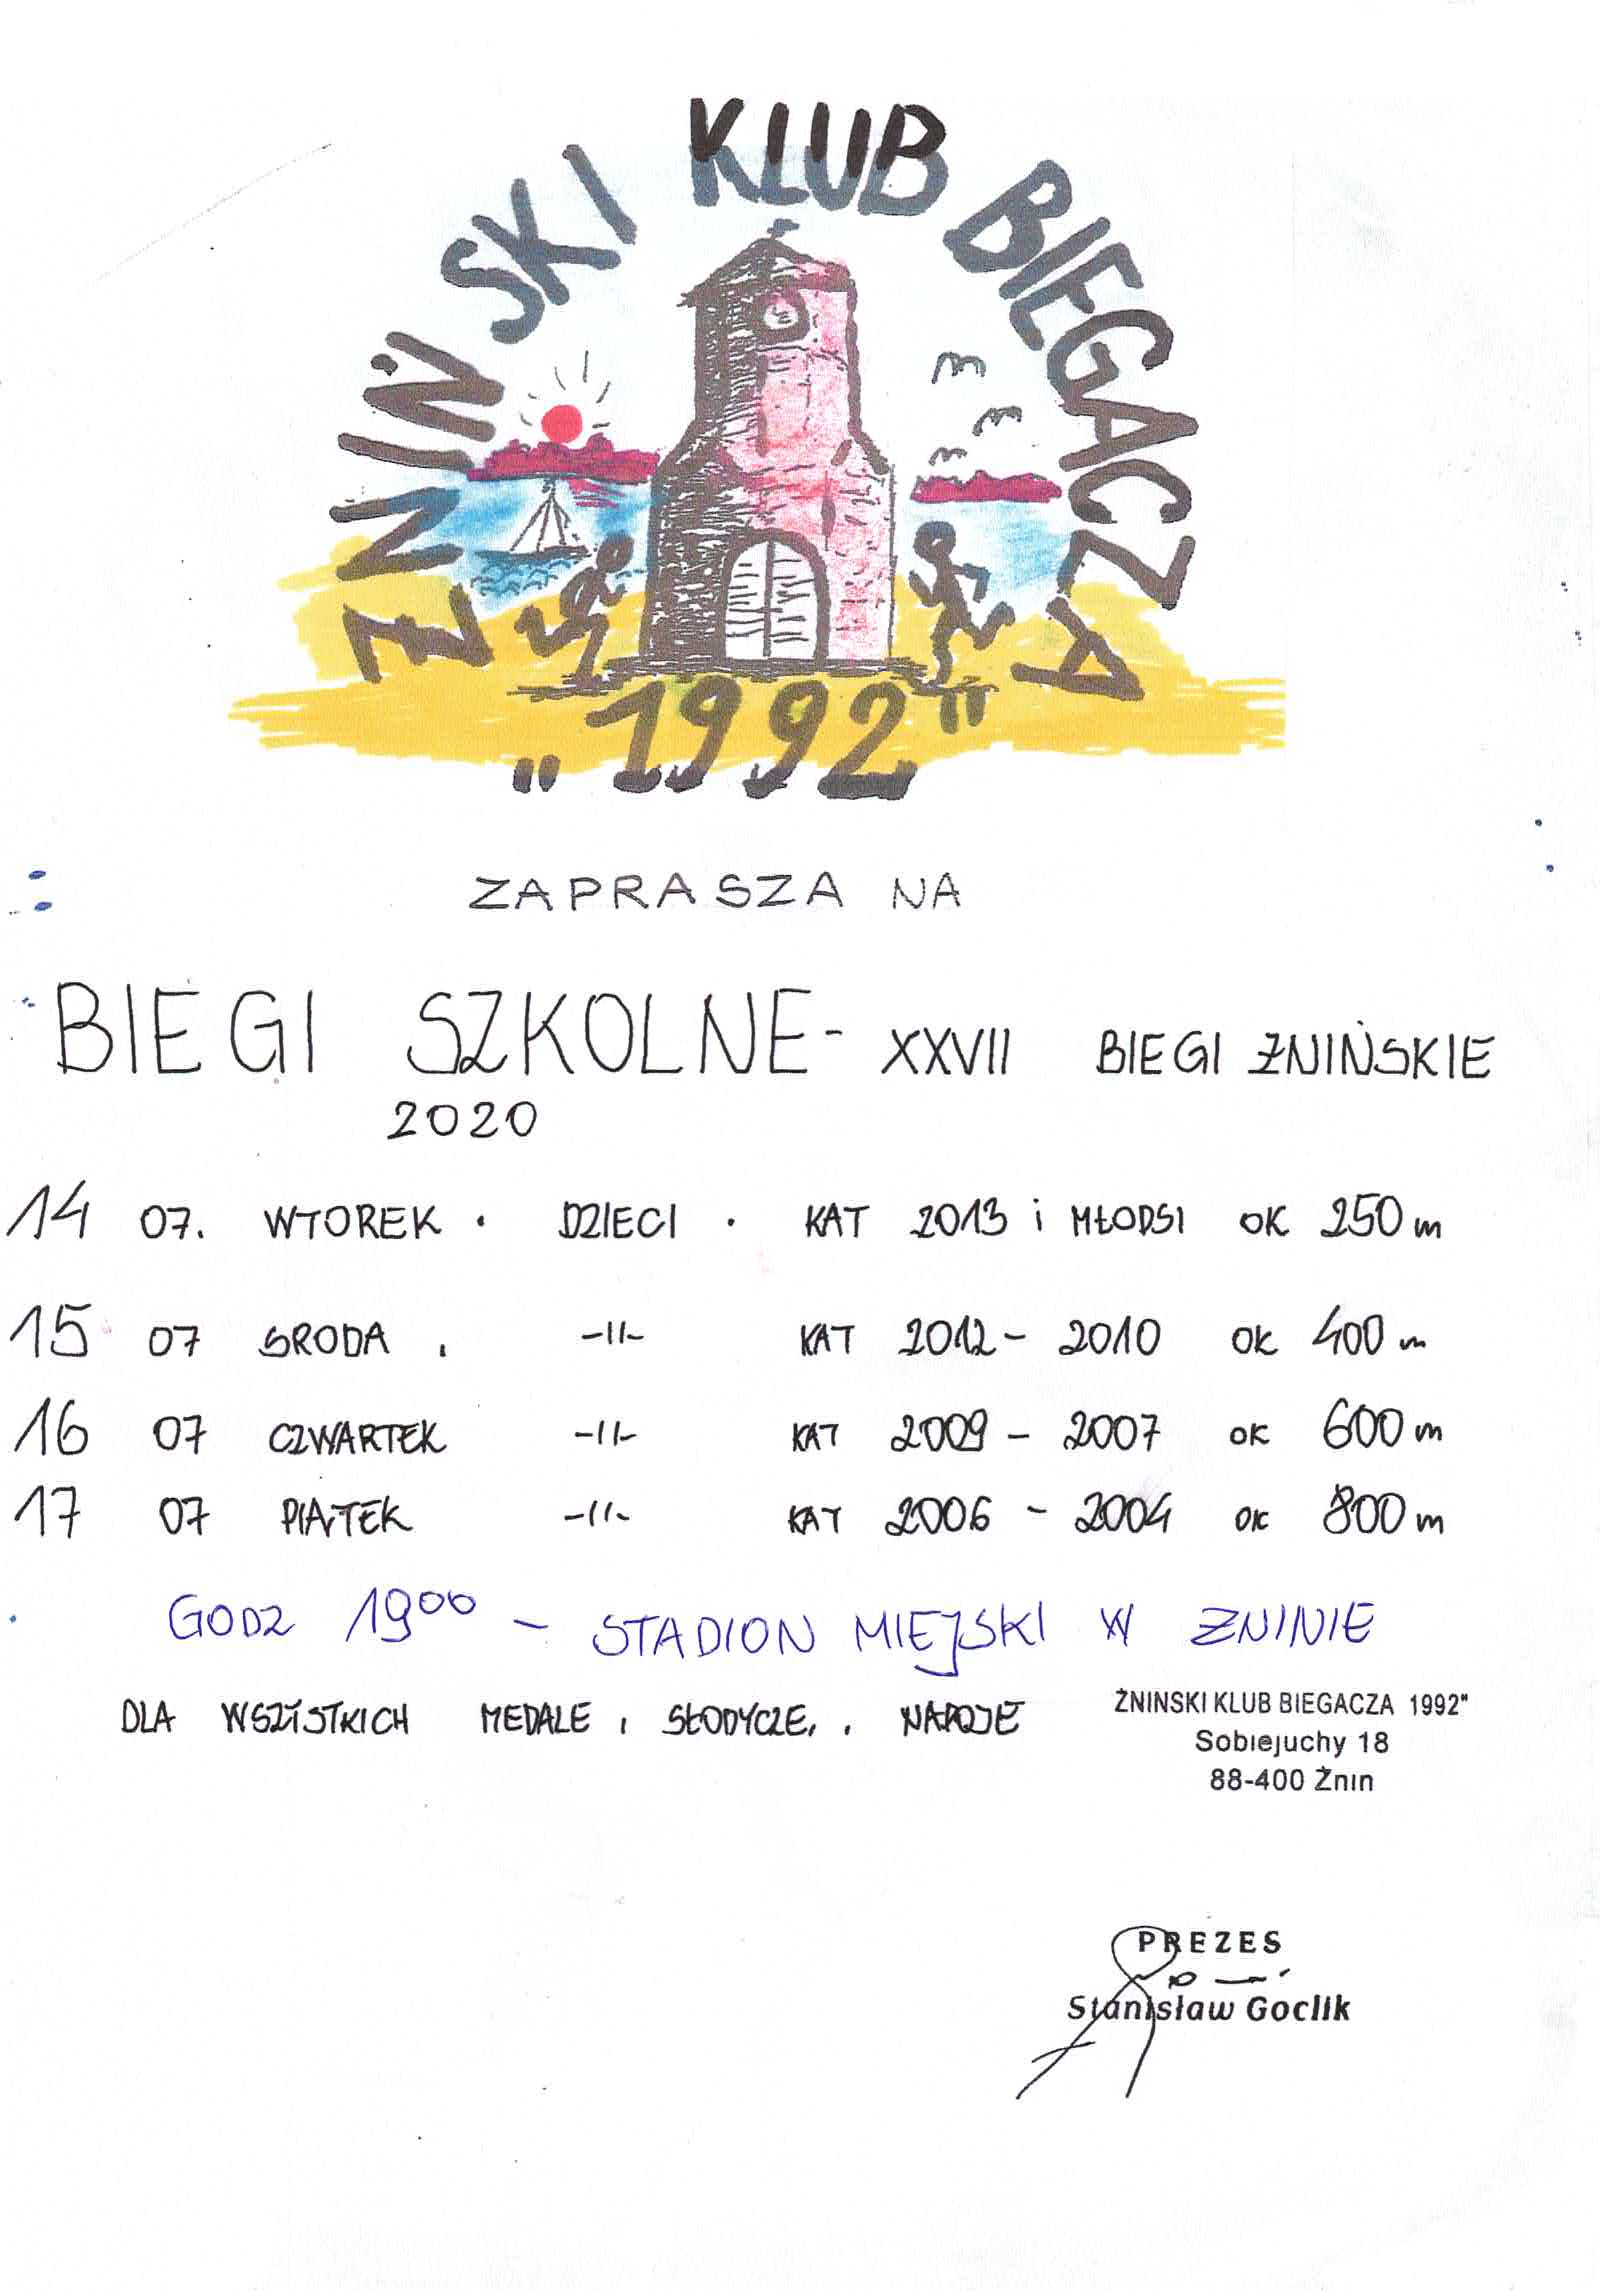 ŻNIŃSKI KLUB BIEGACZA
„1992"
ZAPRASZA NA
BIEGI SZKOLNE - XXVII BIEGI ŻNIŃSKIE
2020
14 07. WTOREK . DZIECI . KAT 2013 i MŁODSI OK 250 m
15 07 SRODA . -11- KAT 2012 - 2010 OK 400 m
16 07 CZWARTEK -11- KAT 2009 - 2007 OK 600 m
17 07 PIĄTEK -11- KAT 2006 - 2004 OK 800 m
GODZ 19⁰⁰ - STADION MIEJSKI W ŻNINIE
DLA WSZYSTKICH MEDALE , SŁODYCZE, . NAPOJE
ŻNINSKI KLUB BIEGACZA 1992"
Sobiejuchy 18
88-400 Żnin
PREZES
Stanisław Goclik